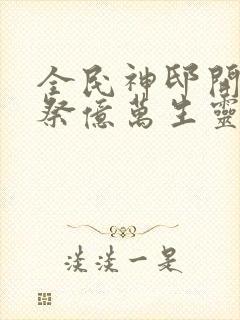 全民神邸開
祭億萬生靈
淡淡一是